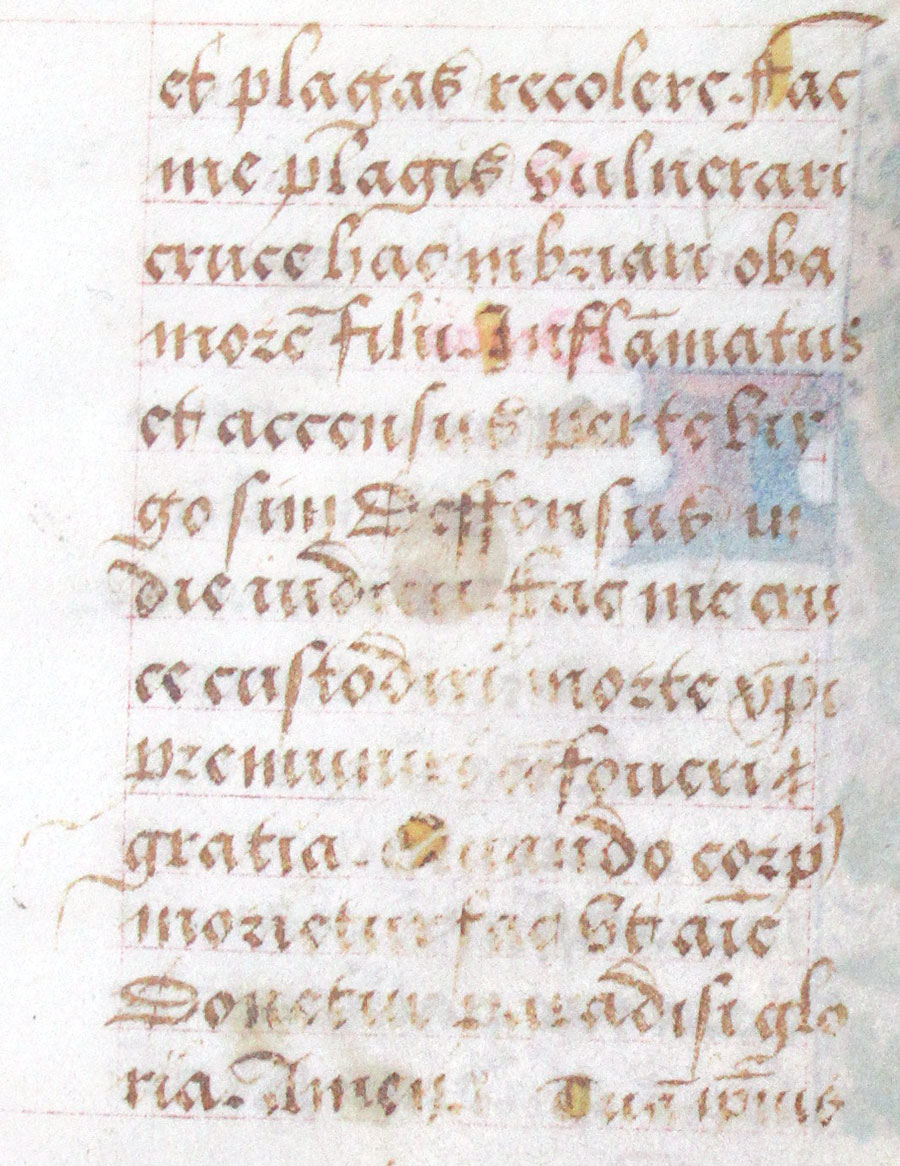 et plagas recolere. ffac
me plagis vulnerari
cruce hac inibriari oba
morē filii. Inflāmatus
et accensus per te vir
go sim Deffensus in
die iudicii. ffac me cru
ce custodiri morte xp̄i
premuniri cōfoueri
gratia. Quando corp
morietur fac vt aīe
Donetur paradisi glo
ria. Amen.